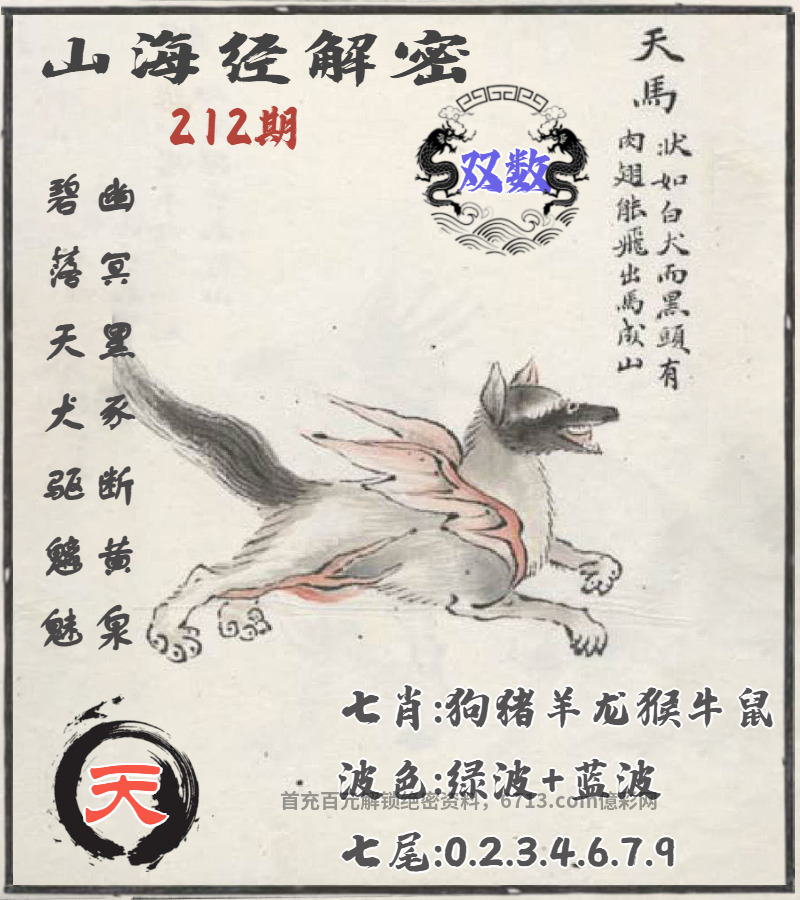 山海经解密
212期
双数
天馬
狀如白犬而黑頭有
肉翅能飛出馬成山
幽冥黑豕断黄泉
碧落天犬驱魑魅
天
七肖:狗猪羊龙猴牛鼠
波色:绿波+蓝波
首充百元解锁绝密资料，6713.com億彩网
七尾:0.2.3.4.6.7.9